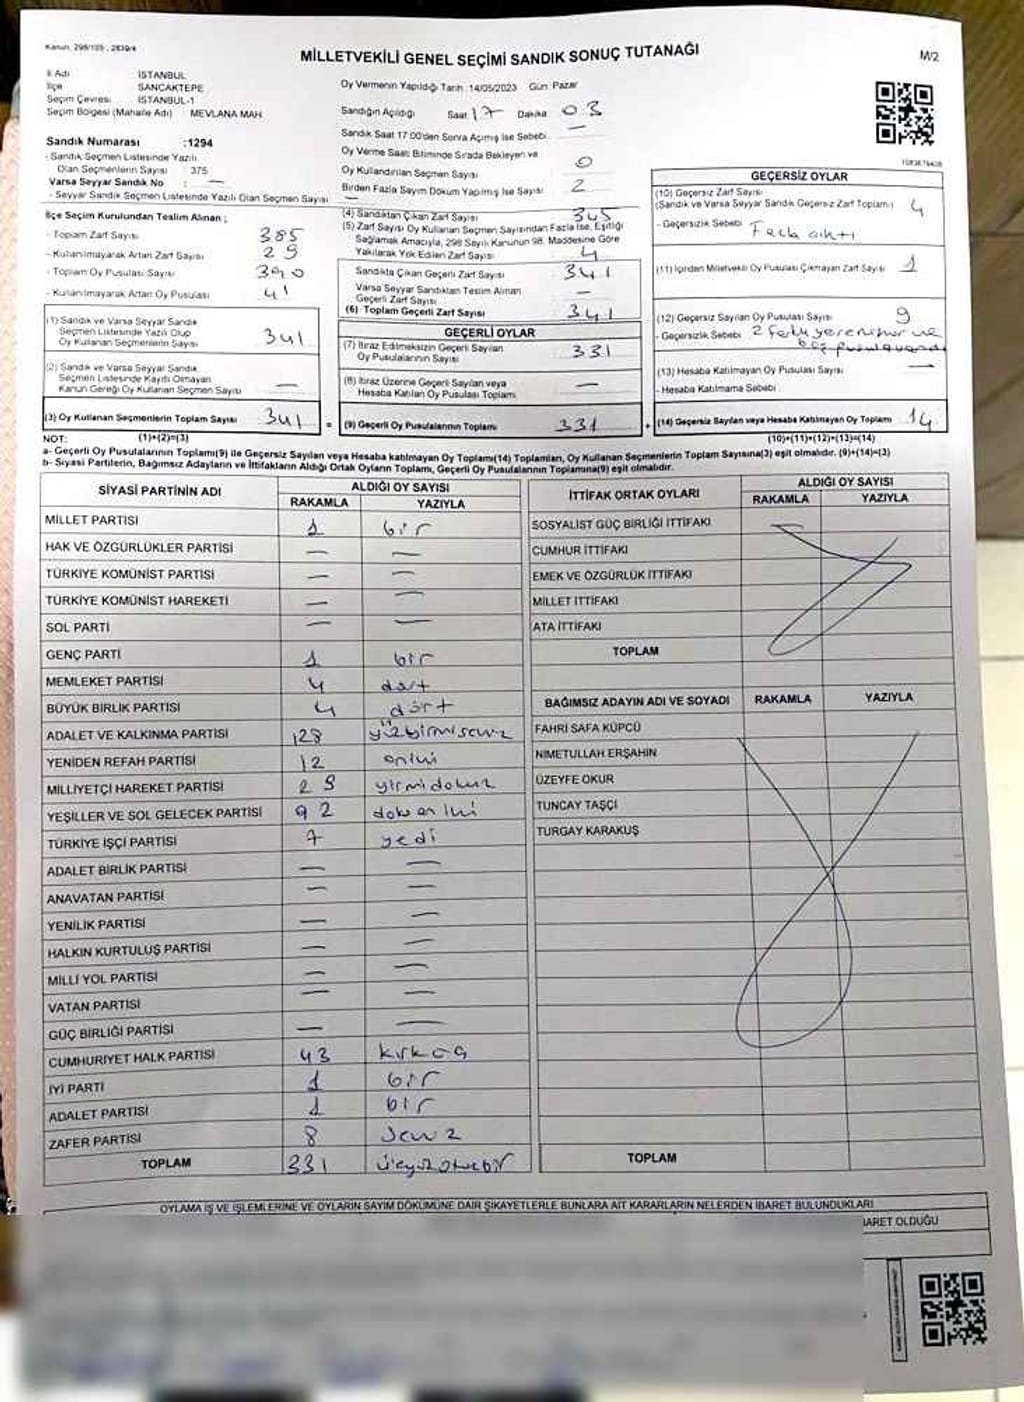 Kanun, 298/105 , 2839/4
MİLLETVEKİLİ GENEL SEÇİMİ SANDIK SONUÇ TUTANAĞI
M/2
İl Adı İSTANBUL
İlçe SANCAKTEPE
Seçim Çevresi İSTANBUL-1
Seçim Bölgesi (Mahalle Adı) MEVLANA MAH.
Sandık Numarası :1294
- Sandık Seçmen Listesinde Yazılı
Olan Seçmenlerin Sayısı : 375
Varsa Seyyar Sandık No : —
- Seyyar Sandık Seçmen Listesinde Yazılı Olan Seçmen Sayısı : —
Oy Vermenin Yapıldığı Tarih :14/05/2023 Gün: Pazar
Sandığın Açıldığı Saat 17 Dakika 03
Sandık Saat 17:00'den Sonra Açılmış İse Sebebi: —
Oy Verme Saati Bitiminde Sırada Bekleyen ve
Oy Kullandırılan Seçmen Sayısı : 0
Birden Fazla Sayım Döküm Yapılmış İse Sayısı : 2
1083876408
İlçe Seçim Kurulundan Teslim Alınan ;
- Toplam Zarf Sayısı 385
- Kullanılmayarak Artan Zarf Sayısı 29
- Toplam Oy Pusulası Sayısı 390
- Kullanılmayarak Artan Oy Pusulası 41
(1) Sandık ve Varsa Seyyar Sandık
Seçmen Listesinde Yazılı Olup
Oy Kullanan Seçmenlerin Sayısı 341
(2) Sandık ve Varsa Seyyar Sandık
Seçmen Listesinde Kayıtlı Olmayan
Kanun Gereği Oy Kullanan Seçmen Sayısı —
(3) Oy Kullanan Seçmenlerin Toplam Sayısı 341
(4) Sandıktan Çıkan Zarf Sayısı 345
(5) Zarf Sayısı Oy Kullanan Seçmen Sayısından Fazla İse, Eşitliği
Sağlamak Amacıyla, 298 Sayılı Kanunun 98. Maddesine Göre
Yakılarak Yok Edilen Zarf Sayısı 4
Sandıkta Çıkan Geçerli Zarf Sayısı 341
Varsa Seyyar Sandıktan Teslim Alınan
Geçerli Zarf Sayısı —
(6) Toplam Geçerli Zarf Sayısı 341
GEÇERLİ OYLAR
(7) İtiraz Edilmeksizin Geçerli Sayılan
Oy Pusulalarının Sayısı 331
(8) İtiraz Üzerine Geçerli Sayılan veya
Hesaba Katılan Oy Pusulası Toplamı —
= (9) Geçerli Oy Pusulalarının Toplamı 331
GEÇERSİZ OYLAR
(10) Geçersiz Zarf Sayısı
(Sandık ve Varsa Seyyar Sandık Geçersiz Zarf Toplamı) 4
- Geçersizlik Sebebi : Fazla çıktı
(11) İçinden Milletvekili Oy Pusulası Çıkmayan Zarf Sayısı 1
(12) Geçersiz Sayılan Oy Pusulası Sayısı 9
- Geçersizlik Sebebi 2 fazla yere mühür ve
boş pusula vardı
(13) Hesaba Katılmayan Oy Pusulası Sayısı —
- Hesaba Katılmama Sebebi :
+ (14) Geçersiz Sayılan veya Hesaba Katılmayan Oy Toplamı 14
NOT: (1)+(2)=(3) (10)+(11)+(12)+(13)=(14)
a- Geçerli Oy Pusulalarının Toplamı(9) ile Geçersiz Sayılan veya Hesaba katılmayan Oy Toplamı(14) Toplamları, Oy Kullanan Seçmenlerin Toplam Sayısına(3) eşit olmalıdır. (9)+(14)=(3)
b- Siyasi Partilerin, Bağımsız Adayların ve İttifakların Aldığı Ortak Oyların Toplamı, Geçerli Oy Pusulalarının Toplamına(9) eşit olmalıdır.
SİYASİ PARTİNİN ADI ALDIĞI OY SAYISI
RAKAMLA YAZIYLA
MİLLET PARTİSİ 1 bir
HAK VE ÖZGÜRLÜKLER PARTİSİ — —
TÜRKİYE KOMÜNİST PARTİSİ — —
TÜRKİYE KOMÜNİST HAREKETİ — —
SOL PARTİ — —
GENÇ PARTİ 1 bir
MEMLEKET PARTİSİ 4 dört
BÜYÜK BİRLİK PARTİSİ 4 dört
ADALET VE KALKINMA PARTİSİ 128 yüzyirmisekiz
YENİDEN REFAH PARTİSİ 12 oniki
MİLLİYETÇİ HAREKET PARTİSİ 29 yirmidokuz
YEŞİLLER VE SOL GELECEK PARTİSİ 92 doksaniki
TÜRKİYE İŞÇİ PARTİSİ 7 yedi
ADALET BİRLİK PARTİSİ — —
ANAVATAN PARTİSİ — —
YENİLİK PARTİSİ — —
HALKIN KURTULUŞ PARTİSİ — —
MİLLİ YOL PARTİSİ — —
VATAN PARTİSİ — —
GÜÇ BİRLİĞİ PARTİSİ — —
CUMHURİYET HALK PARTİSİ 43 kırküç
İYİ PARTİ 1 bir
ADALET PARTİSİ 1 bir
ZAFER PARTİSİ 8 sekiz
TOPLAM 331 üçyüzotuzbir
İTTİFAK ORTAK OYLARI ALDIĞI OY SAYISI
RAKAMLA YAZIYLA
SOSYALİST GÜÇ BİRLİĞİ İTTİFAKI
CUMHUR İTTİFAKI
EMEK VE ÖZGÜRLÜK İTTİFAKI
MİLLET İTTİFAKI
ATA İTTİFAKI
TOPLAM
BAĞIMSIZ ADAYIN ADI VE SOYADI RAKAMLA YAZIYLA
FAHRİ SAFA KÜPCÜ
NİMETULLAH ERŞAHİN
ÜZEYFE OKUR
TUNCAY TAŞÇI
TURGAY KARAKUŞ
TOPLAM
OYLAMA İŞ VE İŞLEMLERİNE VE OYLARIN SAYIM DÖKÜMÜNE DAİR ŞİKAYETLERLE BUNLARA AİT KARARLARIN NELERDEN İBARET BULUNDUKLARI
İBARET OLDUĞU